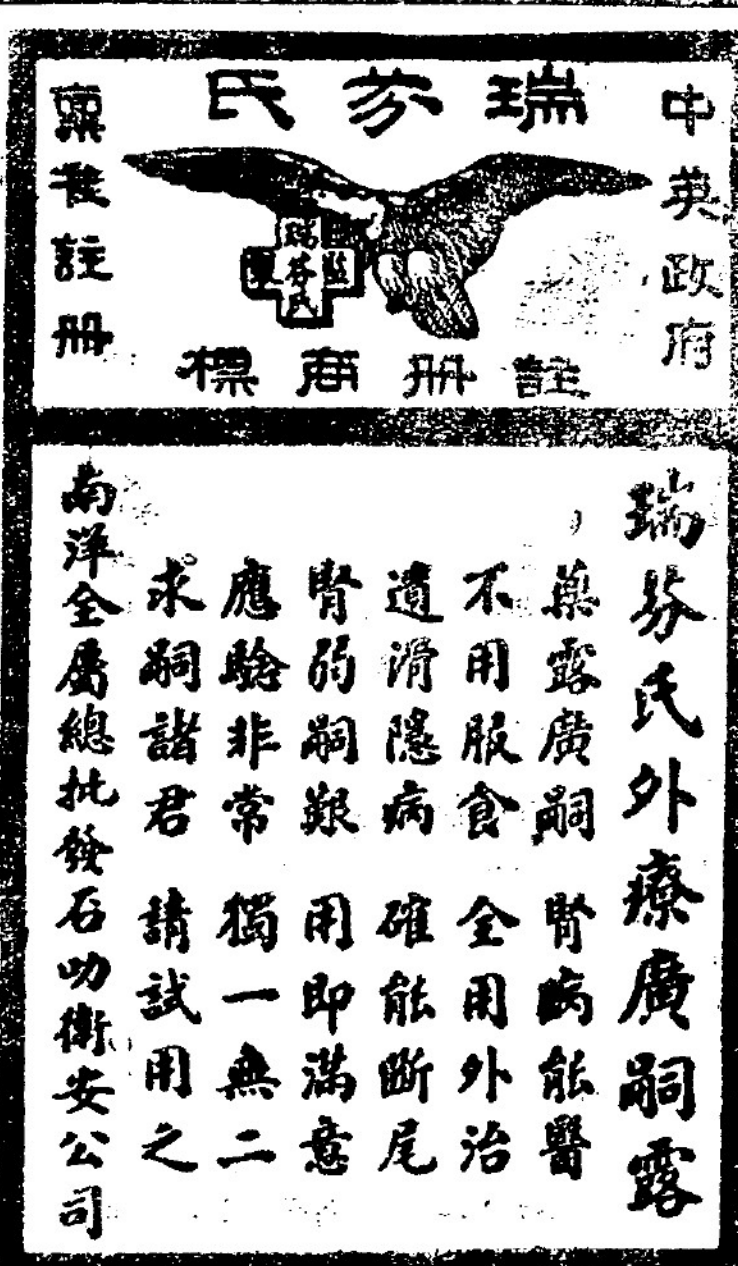 中英政府
瑞芬氏
稟准註冊
瑞芬氏
監製
註册商標
瑞芬氏外療廣嗣露
藥露廣嗣 腎病能醫
不用服食 全用外治
遺滑隱病 確能斷尾
腎弱嗣艱 用即滿意
應驗非常 獨一無二
求嗣諸君 請試用之
南洋全屬總批發石叻衛安公司